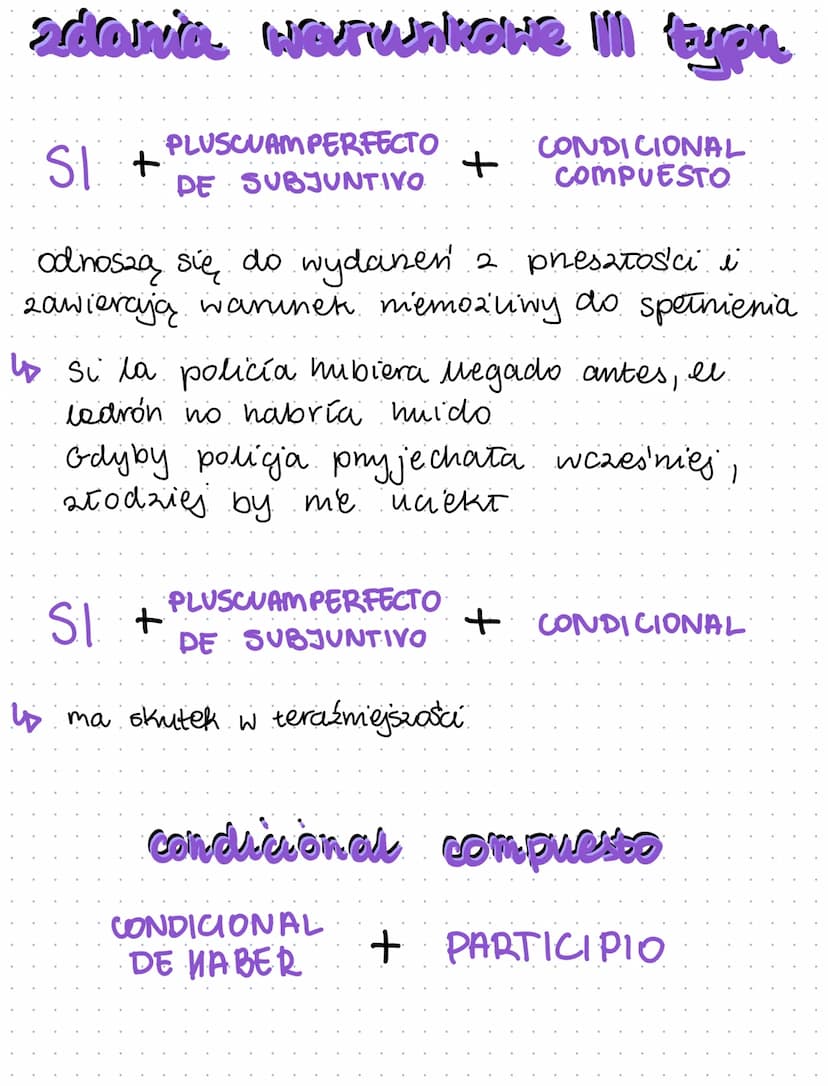 zdania warunkowe III typu
SI + PLUSCUAMPERFECTO DE SUBJUNTIVO + CONDICIONAL COMPUESTO
odnoszą się do wydarzeń z przeszłości i
zawierają warunek niemożliwy do spełnienia
↳ si la policía hubiera llegado antes, el
ladrón no habría huido
Gdyby policja przyjechała wcześniej,
złodziej by nie uciekł
SI + PLUSCUAMPERFECTO DE SUBJUNTIVO + CONDICIONAL
↳ ma skutek w teraźniejszości
condicional compuesto
CONDICIONAL DE HABER + PARTICIPIO